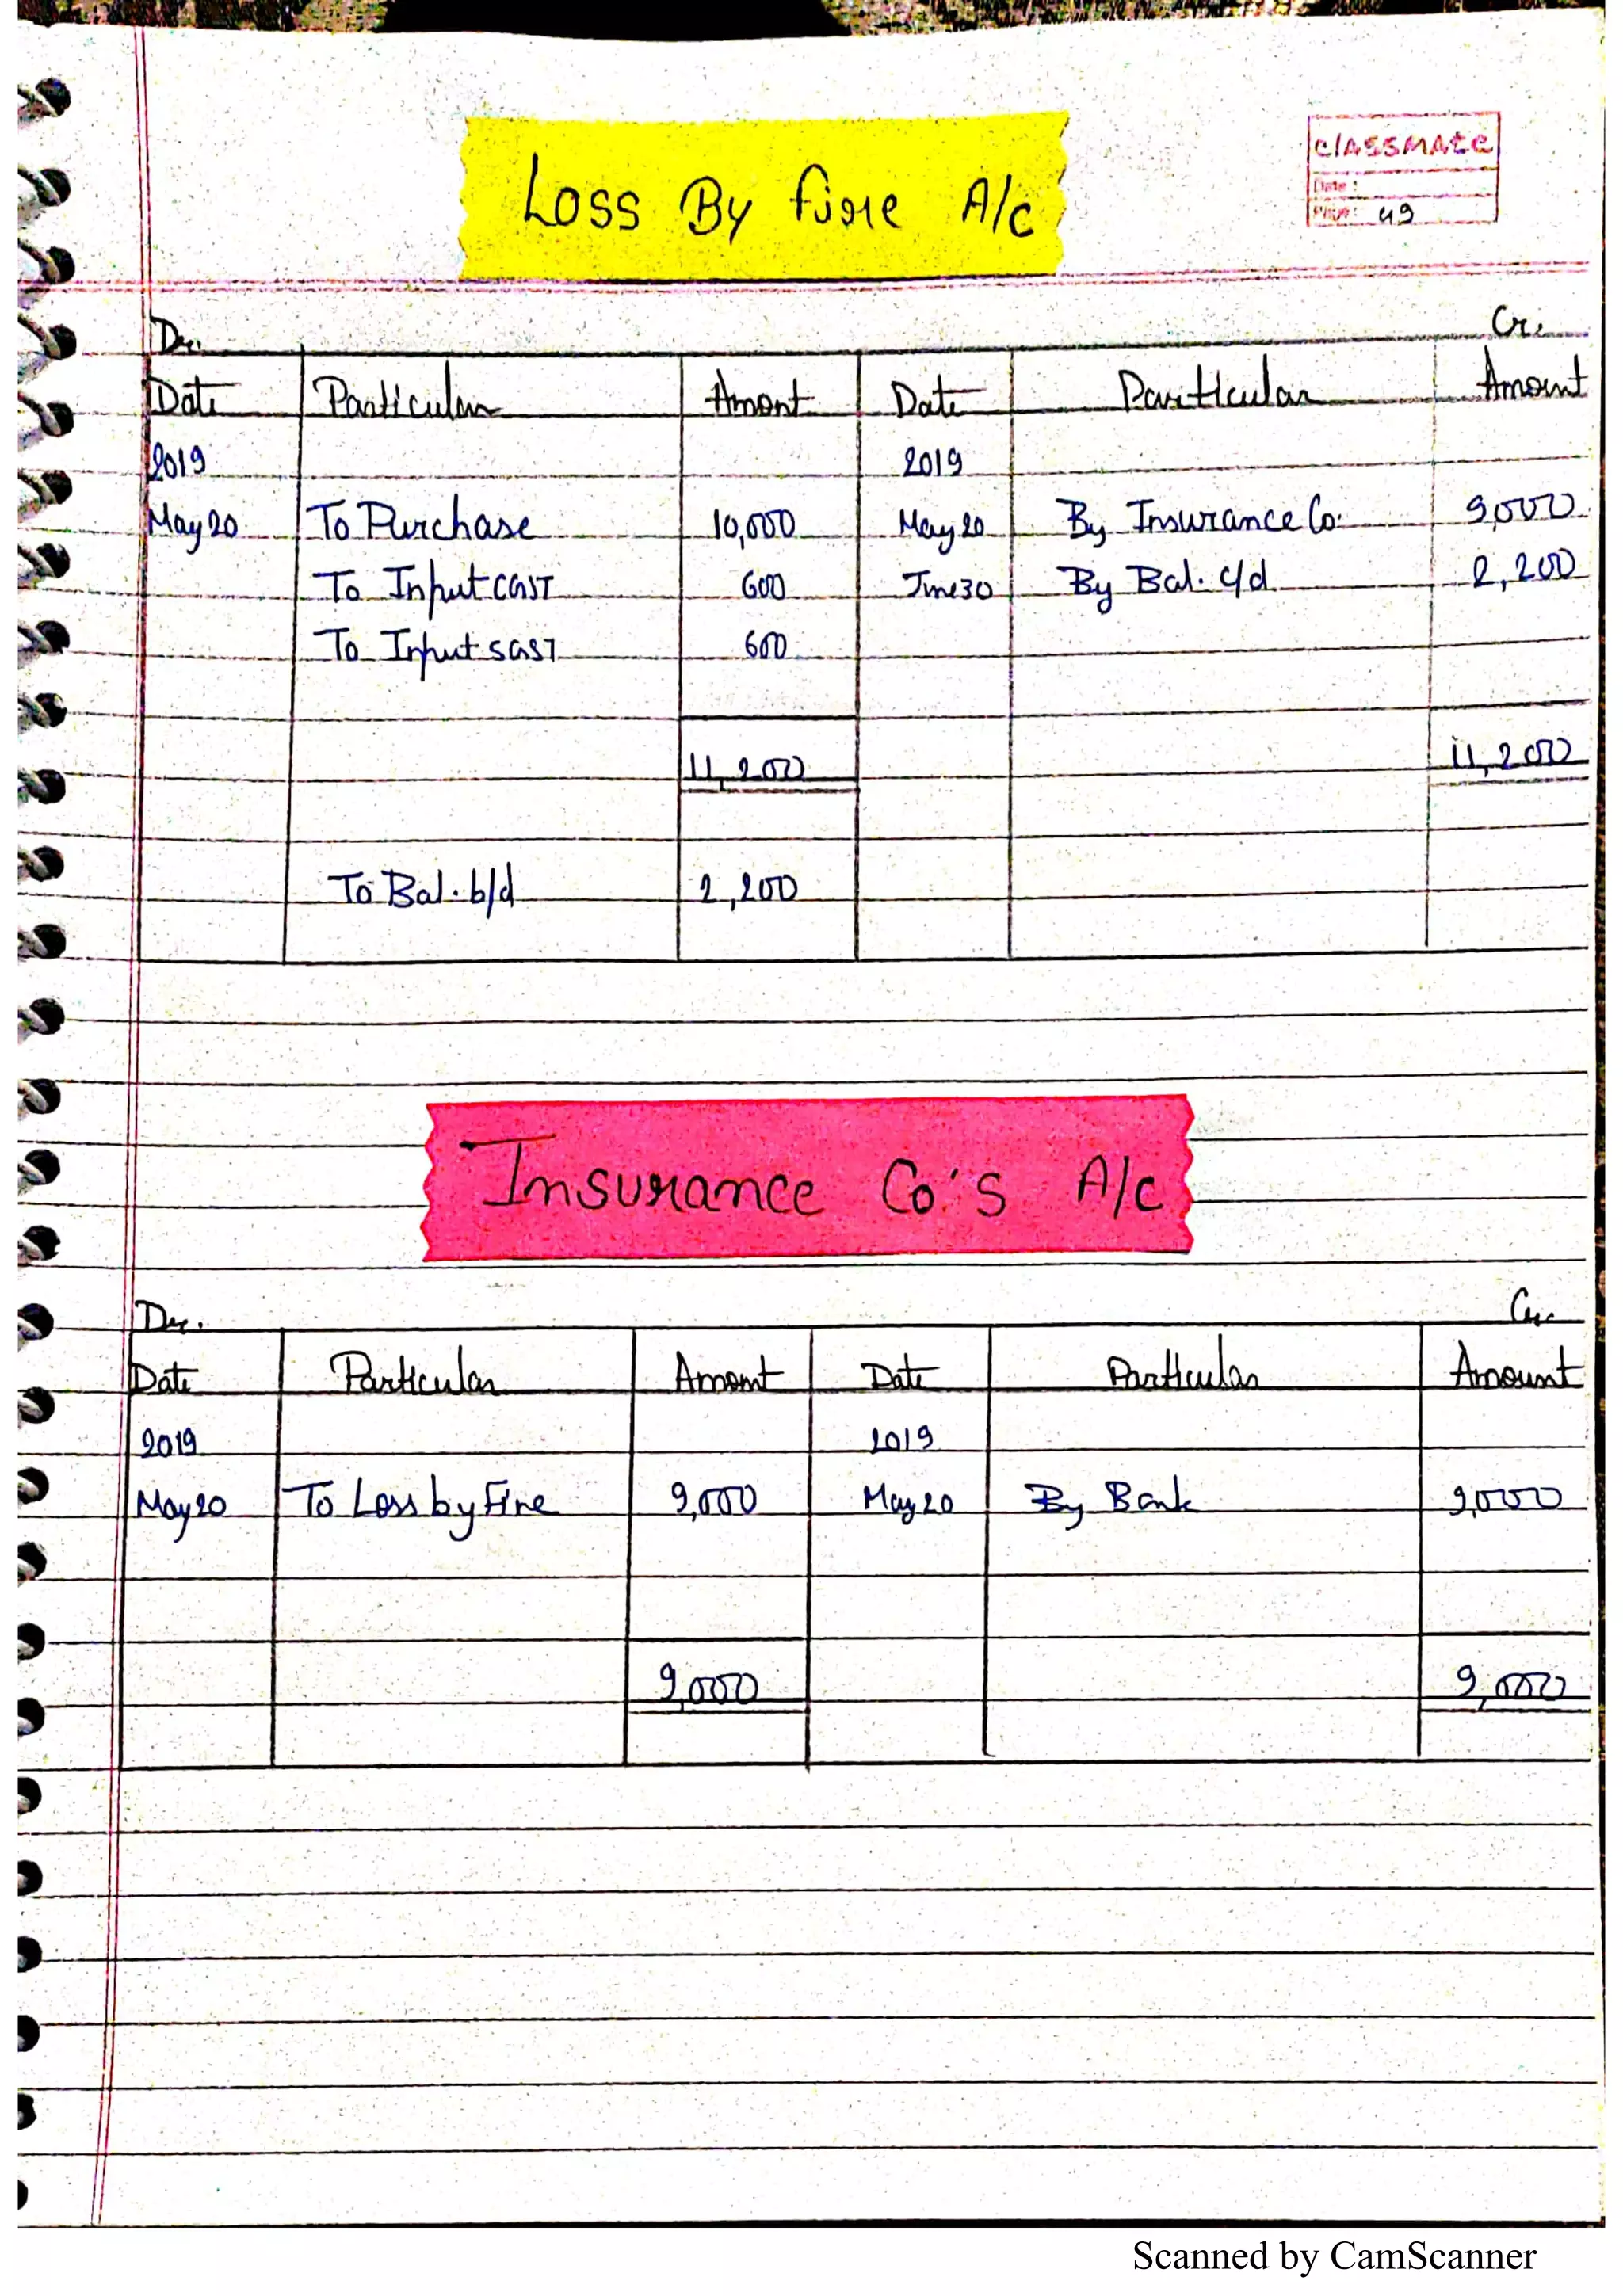 Loss By Fire A/c
classmate
Date :
Page: 49
Dr. Cr.
Date Particular Amont Date Particular Amount
2019 2019
May 20 To Purchase 10,000 May 20 By Insurance Co. 9,000
To Input CGST 600 June 30 By Bal. c/d 2,200
To Input SGST 600
11,200 11,200
To Bal. b/d 2,200
Insurance Co's A/c
Dr. Cr.
Date Particular Amount Date Particular Amount
2019 2019
May 20 To Loss by Fire 9,000 May 20 By Bank 9,000
9,000 9,000
Scanned by CamScanner